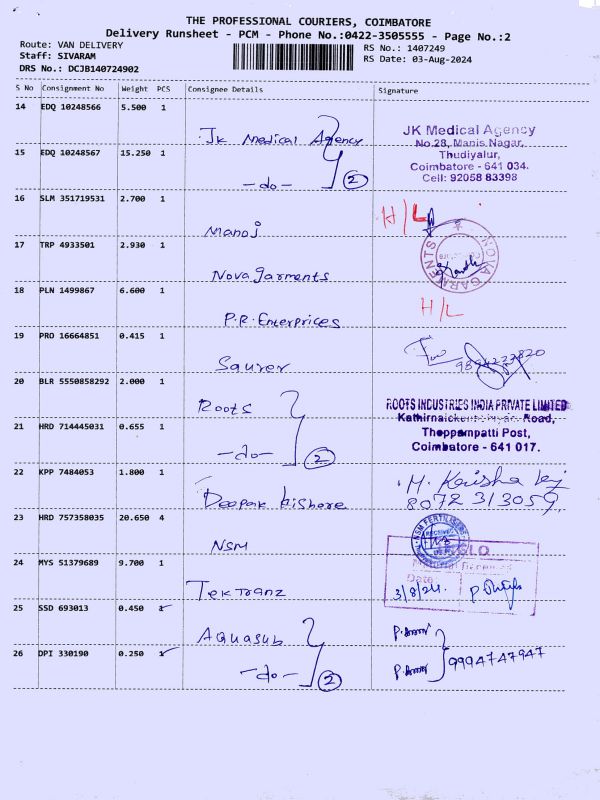 THE PROFESSIONAL COURIERS, COIMBATORE
Delivery Runsheet - PCM - Phone No.:0422-3505555 - Page No.:2
Route: VAN DELIVERY
Staff: SIVARAM
DRS No.: DCJB140724902
RS No.: 1407249
RS Date: 03-Aug-2024
S No Consignment No Weight PCS Consignee Details Signature
14 EDQ 10248566 5.500 1
Jk Medical Agency
JK Medical Agency
No.28, Manis Nagar,
Thudiyalur,
Coimbatore - 641 034.
Cell: 92058 83398
15 EDQ 10248567 15.250 1
-do- 2
16 SLM 351719531 2.700 1
Manoj
H/L
17 TRP 4933501 2.930 1
Nova garments
NOVA GARMENTS
18 PLN 1499867 6.600 1
P.R. Enterprices
H/L
19 PRO 16664851 0.415 1
Saurer
9894227820
20 BLR 5550858292 2.000 1
Roots
ROOTS INDUSTRIES INDIA PRIVATE LIMITED
Road,
Thoppampatti Post,
Coimbatore - 641 017.
21 HRD 714445031 0.655 1
-do- 2
22 KPP 7484053 1.800 1
Deepak kishore
M. Krisha
8072 313059
23 HRD 757358035 20.650 4
NSM
NSM FERTILISERS
RECEIVED
24 MYS 51379689 9.700 1
Tek Tranz
Material Received
Date:
3/8/24.
25 SSD 693013 0.450 1
Aquasub
26 DPI 330190 0.250 1
-do- 2
9994747947